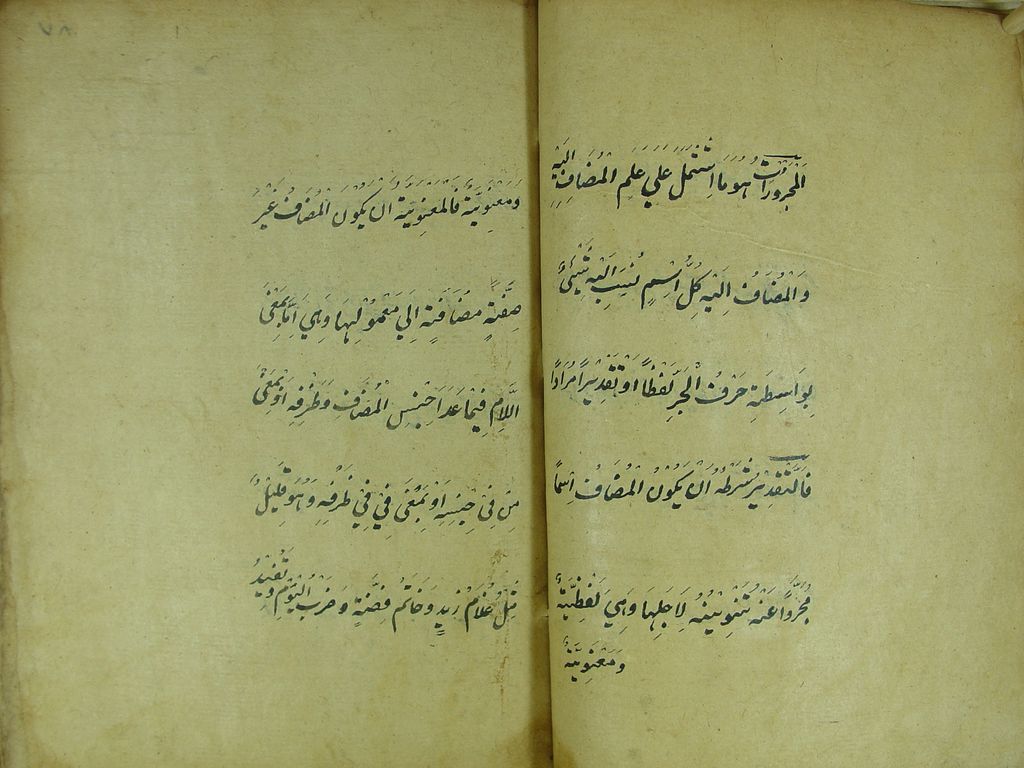 اَلْمَجْرُورَاتُ هُوَ مَا اشْتَمَلَ عَلَى عَلَمِ الْمُضَافِ اِلَيْهِ
وَالْمُضَافُ اِلَيْهِ كُلُّ اِسْمٍ نُسِبَ اِلَيْهِ شَيْئٌ
بِوَاسِطَةِ حَرْفِ الْجَرِّ لَفْظًا اَوْ تَقْدِيرًا مُرَادًا
فَالتَّقْدِيرُ شَرْطُهُ اَنْ يَكُونَ الْمُضَافُ اِسْمًا
مُجَرَّدًا عَنْهُ تَنْوِينُهُ لِاَجْلِهَا وَهِيَ لَفْظِيَّةٌ
وَمَعْنَوِيَّةٌ
وَمَعْنَوِيَّةٌ فَالْمَعْنَوِيَّةُ اَنْ يَكُونَ الْمُضَافُ غَيْرَ
صِفَةٍ مُضَافَةٍ اِلَى مَعْمُولِهَا وَهِيَ اِمَّا بِمَعْنَى
اللَّامِ فِيمَا عَدَا جِنْسِ الْمُضَافِ وَظَرْفِهِ اَوْ بِمَعْنَى
مِنْ فِى جِنْسِهِ اَوْ بِمَعْنَى فِي فِي ظَرْفِهِ وَهُوَ قَلِيلٌ
مِثْلُ غُلَامُ زَيْدٍ وَخَاتَمُ فِضَّةٍ وَضَرْبُ الْيَوْمِ وَتُفِيدُ
٨٧